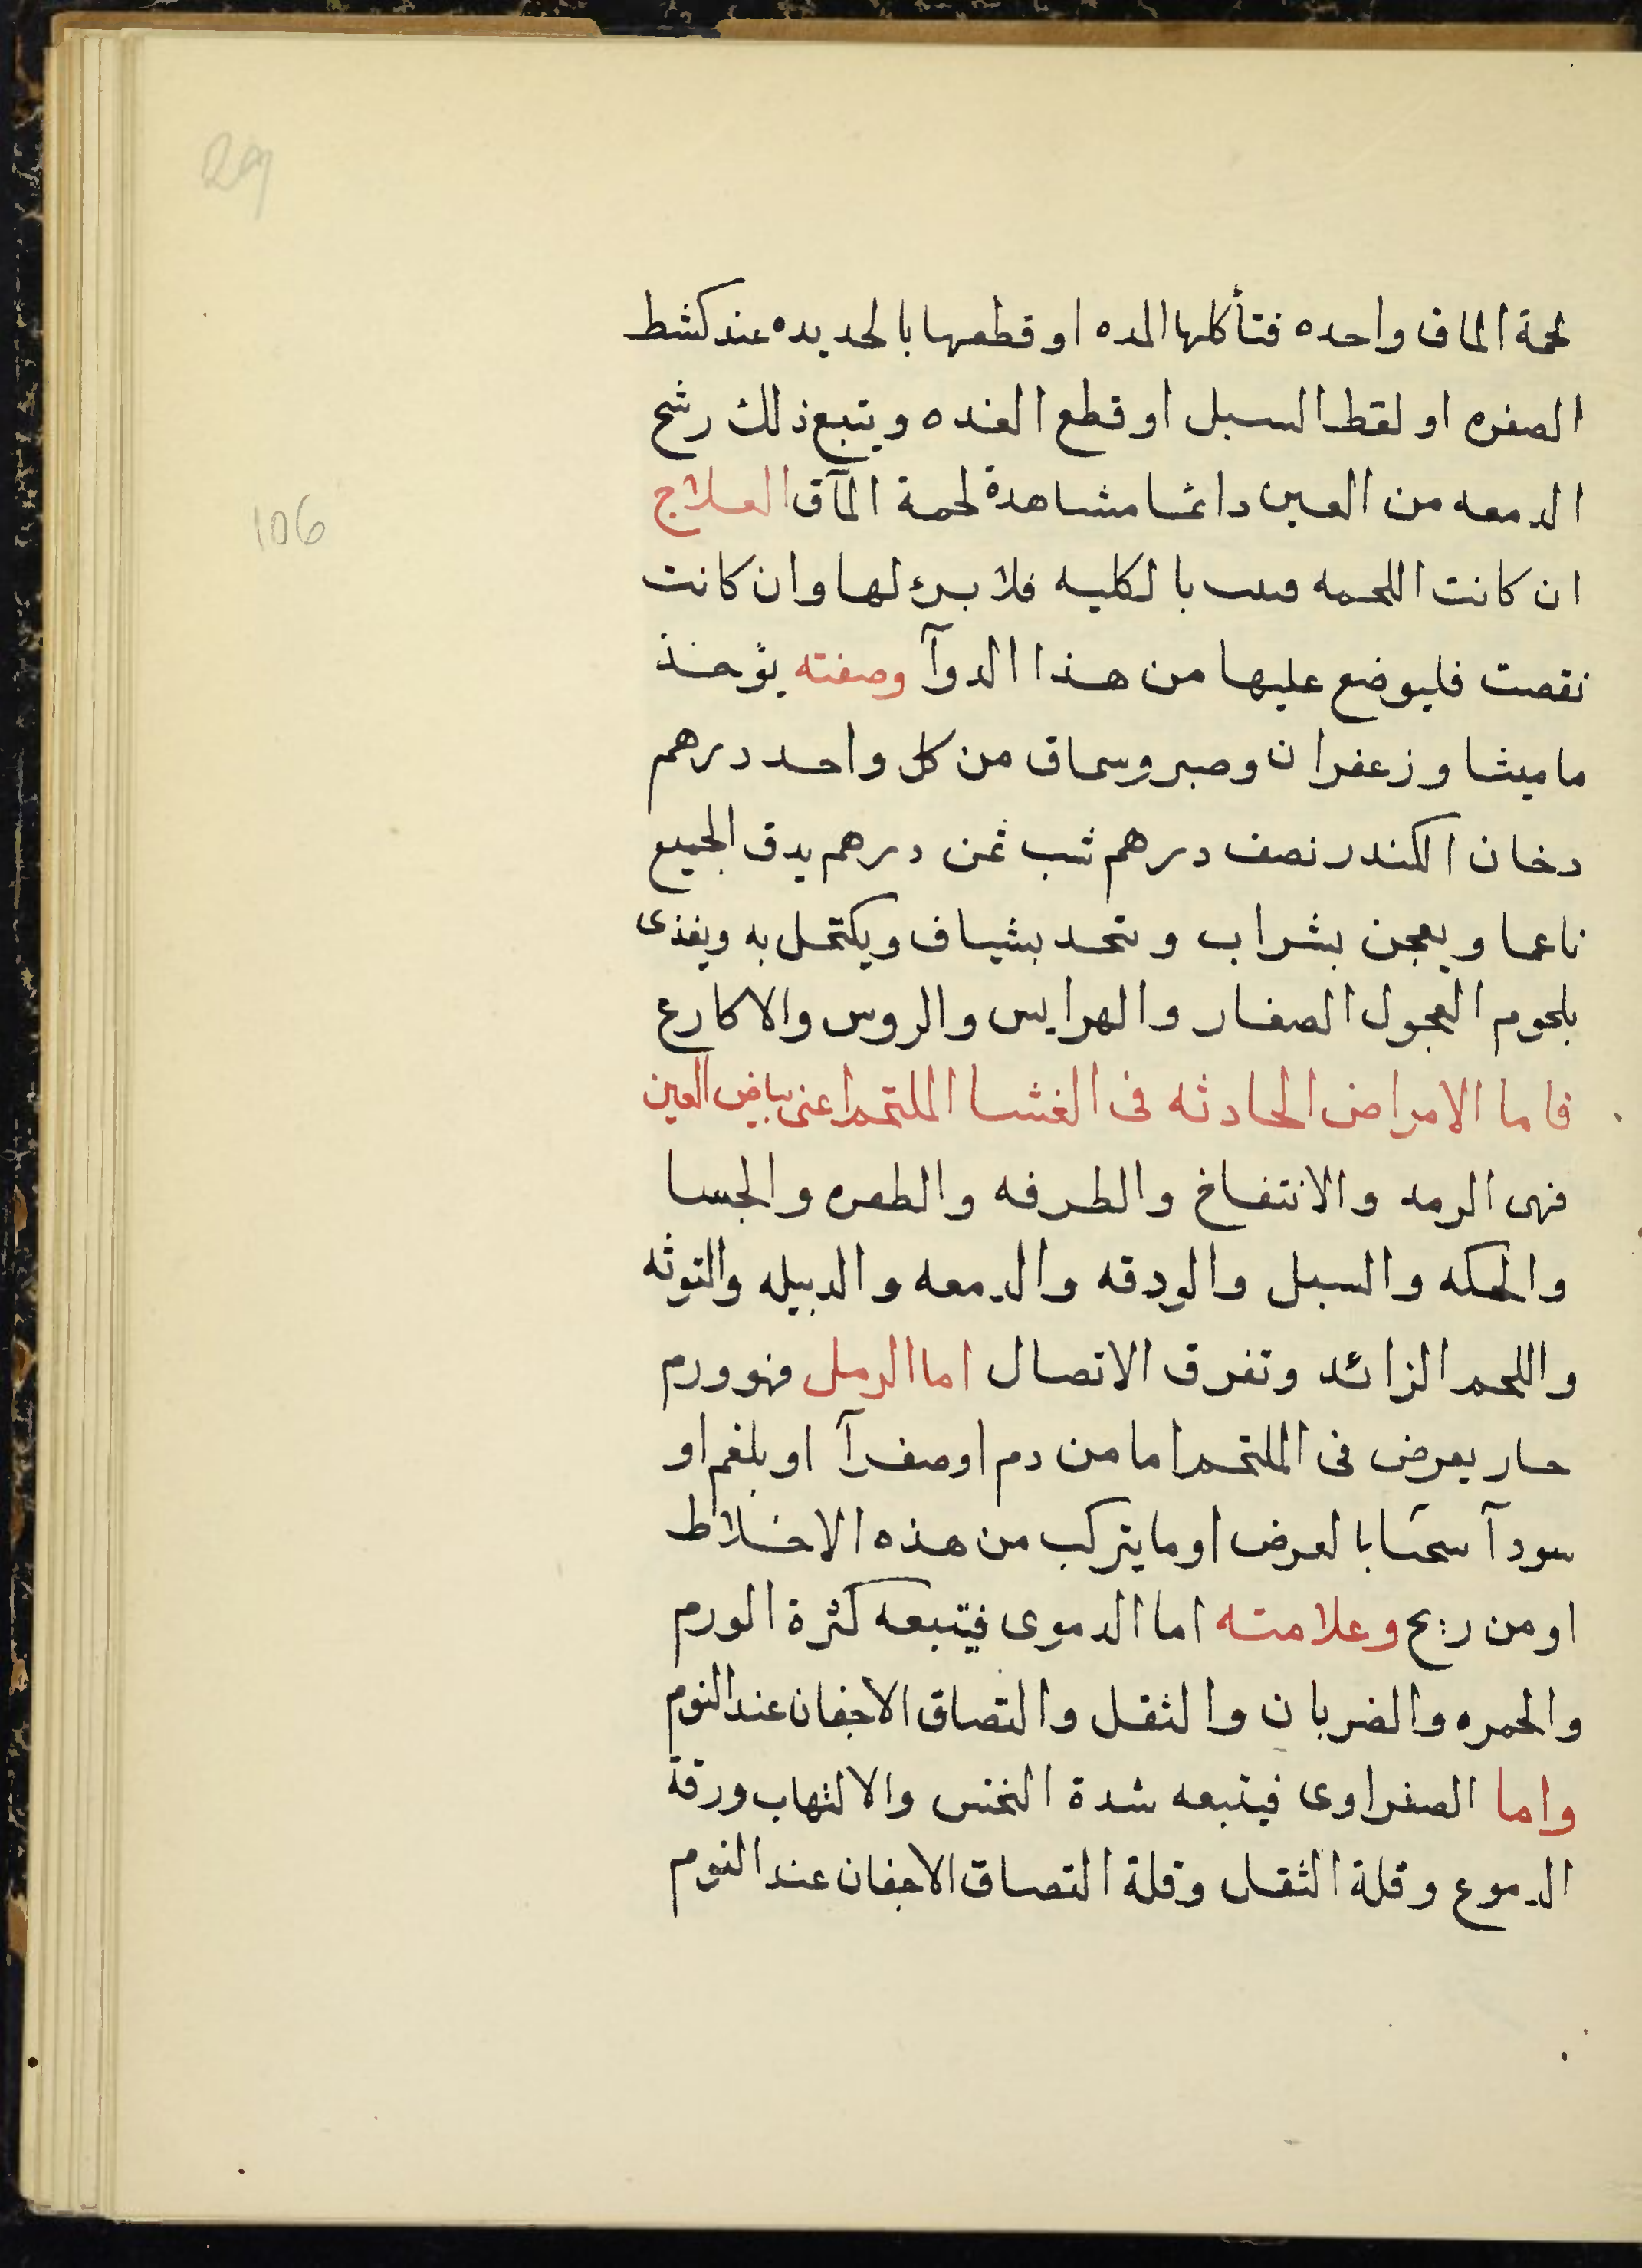 29
لحمة الماق واحده فتأكلها المده او قطعها بالحديده عند كشط
الصفره او لقط السبل او قطع الغده ويتبع ذلك رشح
الدمعه من العين دائما مشاهدة لحمة المآق العلاج
106
ان كانت اللحمه بالكليه فلا برء لها وان كانت
نقصت فليوضع عليها من هذا الدوآ وصفته يؤخذ
ماميثا وزعفران وصبر وسماق من كل واحد درهم
دخان الكندر نصف درهم شب ثمن درهم يدق الجميع
ناعما ويعجن بشراب و بشياف ويكتحل به ويغذى
بلحوم العجول الصغار والهرايس والروس والاكارع
فاما الامراض الحادثه فى الغشا الملتحم اعنى بياض العين
فهى الرمد والانتفاخ والطرفه والطفره والجسا
والحكه والسبل والودقه والدمعه والدبيله والتوثه
واللحم الزائد وتفرق الاتصال اما الرمد فهو ورم
حار يعرض فى الملتحم اما من دم او صفرآ او بلغم او
سودآ سخنا بالعرض او ما يتركب من هذه الاخلاط
او من ريح وعلامته اما الدموى فيتبعه كثرة الورم
والحمره والضربان والثقل والتصاق الاجفان عند النوم
واما الصفراوى فيتبعه شدة النخس والالتهاب ورقة
الدموع وقلة الثقل وقلة التصاق الاجفان عند النوم